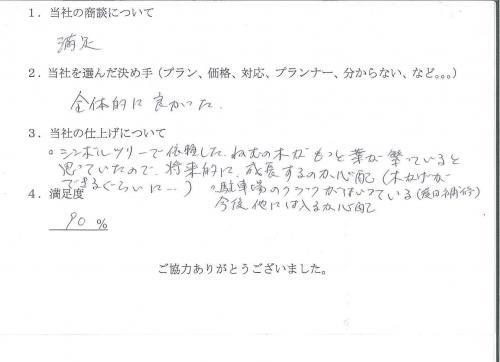 1．当社の商談について
満足
2．当社を選んだ決め手（プラン、価格、対応、プランナー、分からない、など。。。）
全体的に良かった.
3．当社の仕上げについて
。シンボルツリーで依頼した、ねむの木がもっと葉が繁っていると
思っていたので、将来的に、成長するのか心配（木かげが
できるぐらいに…）。駐車場のクラックがはいっている（後日補修）
4．満足度
今後他には入るか心配
90 %
ご協力ありがとうございました。